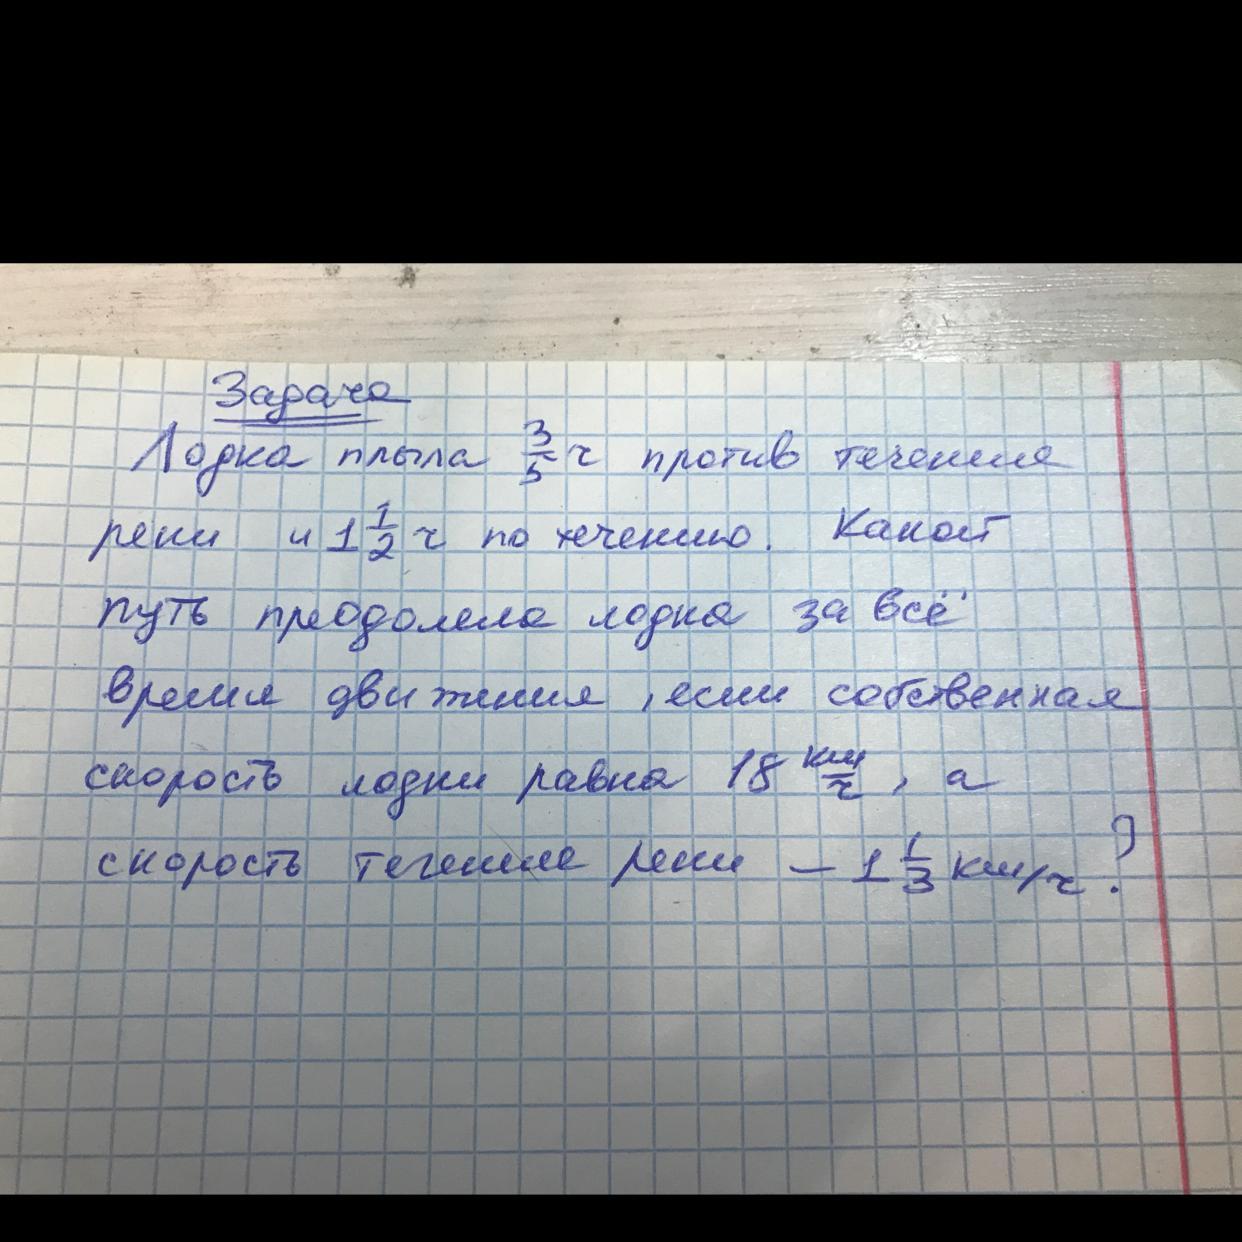 Задача
Лодка плыла 3/5 ч против течения
реки и 1 1/2 ч по течению. Какой
путь преодолела лодка за всё
время движения, если собственная
скорость лодки равна 18 км/ч, а
скорость течение реки – 1 1/3 км/ч?